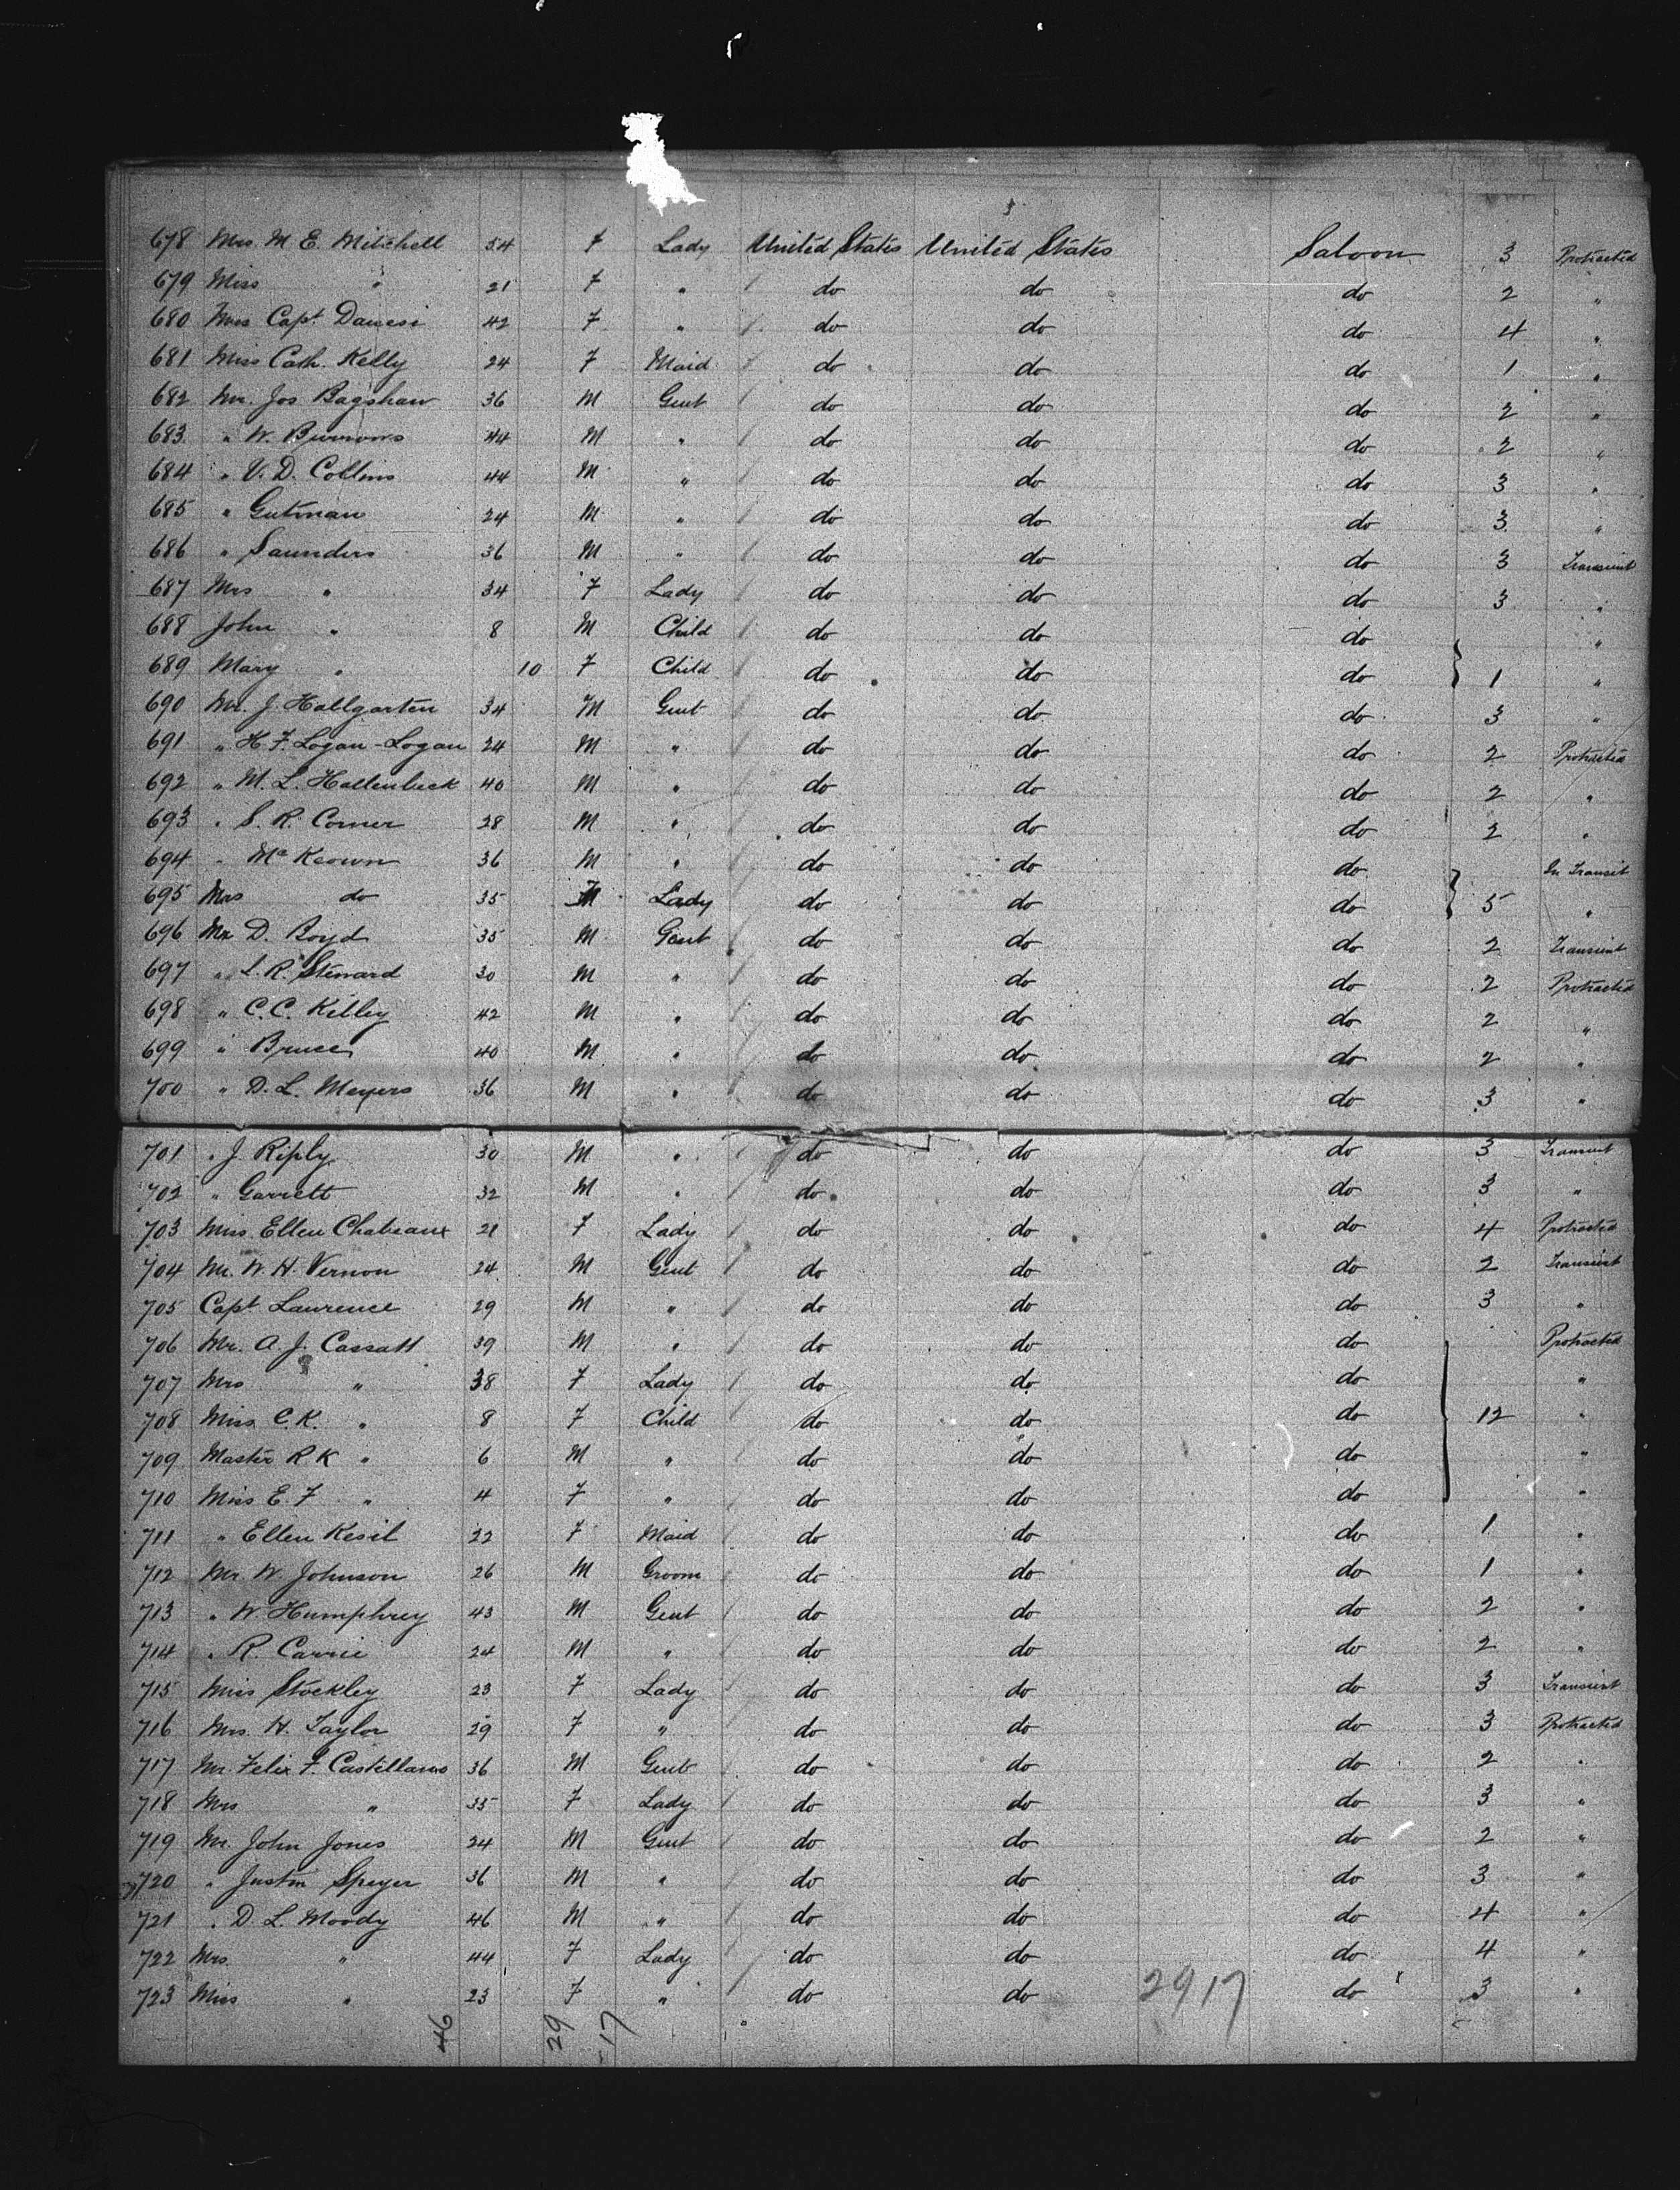 678 Mrs. M E. Mitchell 54 F Lady United States United States Saloon 3 Protracted
679 Miss " 21 F " do do do 2 "
680 Mrs Capt. 42 F " do do do 4 "
681 Miss Cath. Kelly 24 F Maid do do do 1 "
682 Mr. Jos Bagshaw 36 M Gent do do do 2 "
683 " W. Burrows 44 M " do do do 2 "
684 " V. D. Collins 44 M " do do do 3 "
685 " Gutman 24 M " do do do 3 "
686 " Saunders 36 M " do do do 3 Transient
687 Mrs " 34 F Lady do do do 3 "
688 John " 8 M Child do do do "
689 Mary " 10 F Child do do do 1 "
690 Mr. J. Hallgarten 34 M Gent do do do 3 "
691 " H. F. Logan-Logan 24 M " do do do 2 Protracted
692 " M. L. Hallenbeck 40 M " do do do 2 "
693 " S. R. Comer 28 M " do do do 2 "
694 " Mc Keown 36 M " do do do In Transit
695 Mrs do 35 F Lady do do do 5 "
696 Mr D. Boyd 35 M Gent do do do 2 Transient
697 " L. R. Steward 30 M " do do do 2 Protracted
698 " C. C. Kelley 42 M " do do do 2 "
699 " Bruce 40 M " do do do 2 "
700 " D. L. Meyers 36 M " do do do 3 "
701 " J. Riply 30 M " do do do 3 Transient
702 " Garrett 32 M " do do do 3 "
703 Miss Ellen 21 F Lady do do do 4 Protracted
704 Mr. W. H. Vernon 24 M Gent do do do 2 Transient
705 Capt Laurence 29 M " do do do 3 "
706 Mr. A. J. Cassatt 39 M " do do do Protracted
707 Mrs " 38 F Lady do do do "
708 Miss C. K. " 8 F Child do do do 12 "
709 Master R K " 6 M " do do do "
710 Miss E. F " 4 F " do do do "
711 " Ellen Kesil 22 F Maid do do do 1 "
712 Mr W. Johnson 26 M Groom do do do 1 "
713 " W. Humphrey 43 M Gent do do do 2 "
714 " R. Carrie 24 M " do do do 2 "
715 Miss Stockley 23 F Lady do do do 3 Transient
716 Mrs. H. Taylor 29 F " do do do 3 Protracted
717 Mr. Felix F. Castillanos 36 M Gent do do do 2 "
718 Mrs " 35 F Lady do do do 3 "
719 Mr. John Jones 24 M Gent do do do 2 "
720 " Justin Speyer 36 M " do do do 3 "
721 " D. L. Moody 46 M " do do do 4 "
722 Mrs. " 44 F Lady do do do 4 "
723 Miss " 23 F " do do 2917 do 3 "
46 29 17